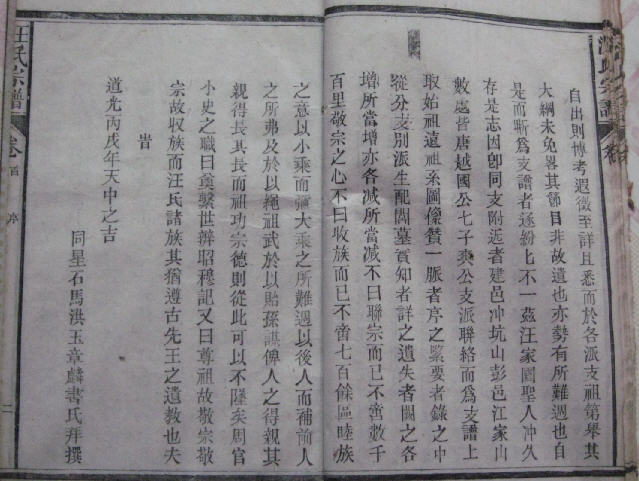 自出則博考遐徵至詳且悉而於各派支祖第舉其
大綱未免畧其節目非故遺也亦勢有所難週也自
是而斬爲支譜者遂紛匕不一茲汪家圍聖人冲久
存是志因卽同支附近者建邑冲坑山彭邑江家山
數處皆唐越國公七子爽公支派聯絡而爲支譜上
取始祖遠祖系圖像贊一脈者序之緊要者錄之中
從分支別派生配闔墓實知者詳之遺失者闕之各
增所當增亦各减所當减不曰聯宗而已不啻數千
百里敬宗之心不曰收族而已不啻七百餘區睦族
之意以小乘而彌大乘之所難週以後人而補前人
之所弗及於以繩祖武於以貽孫謀俾人之得親其
親得長其長而祖功宗德則從此可以不墜矣周官
小史之職曰奠繫世辨昭穆記又曰尊祖故敬宗敬
宗故収族而汪氏諸族其猶遵古先王之遺教也夫
旹
道光丙戌年天中之吉
同星石馬洪玉章麟書氏拜撰
汪氏宗譜
卷首
序
二
氏宗譜
卷